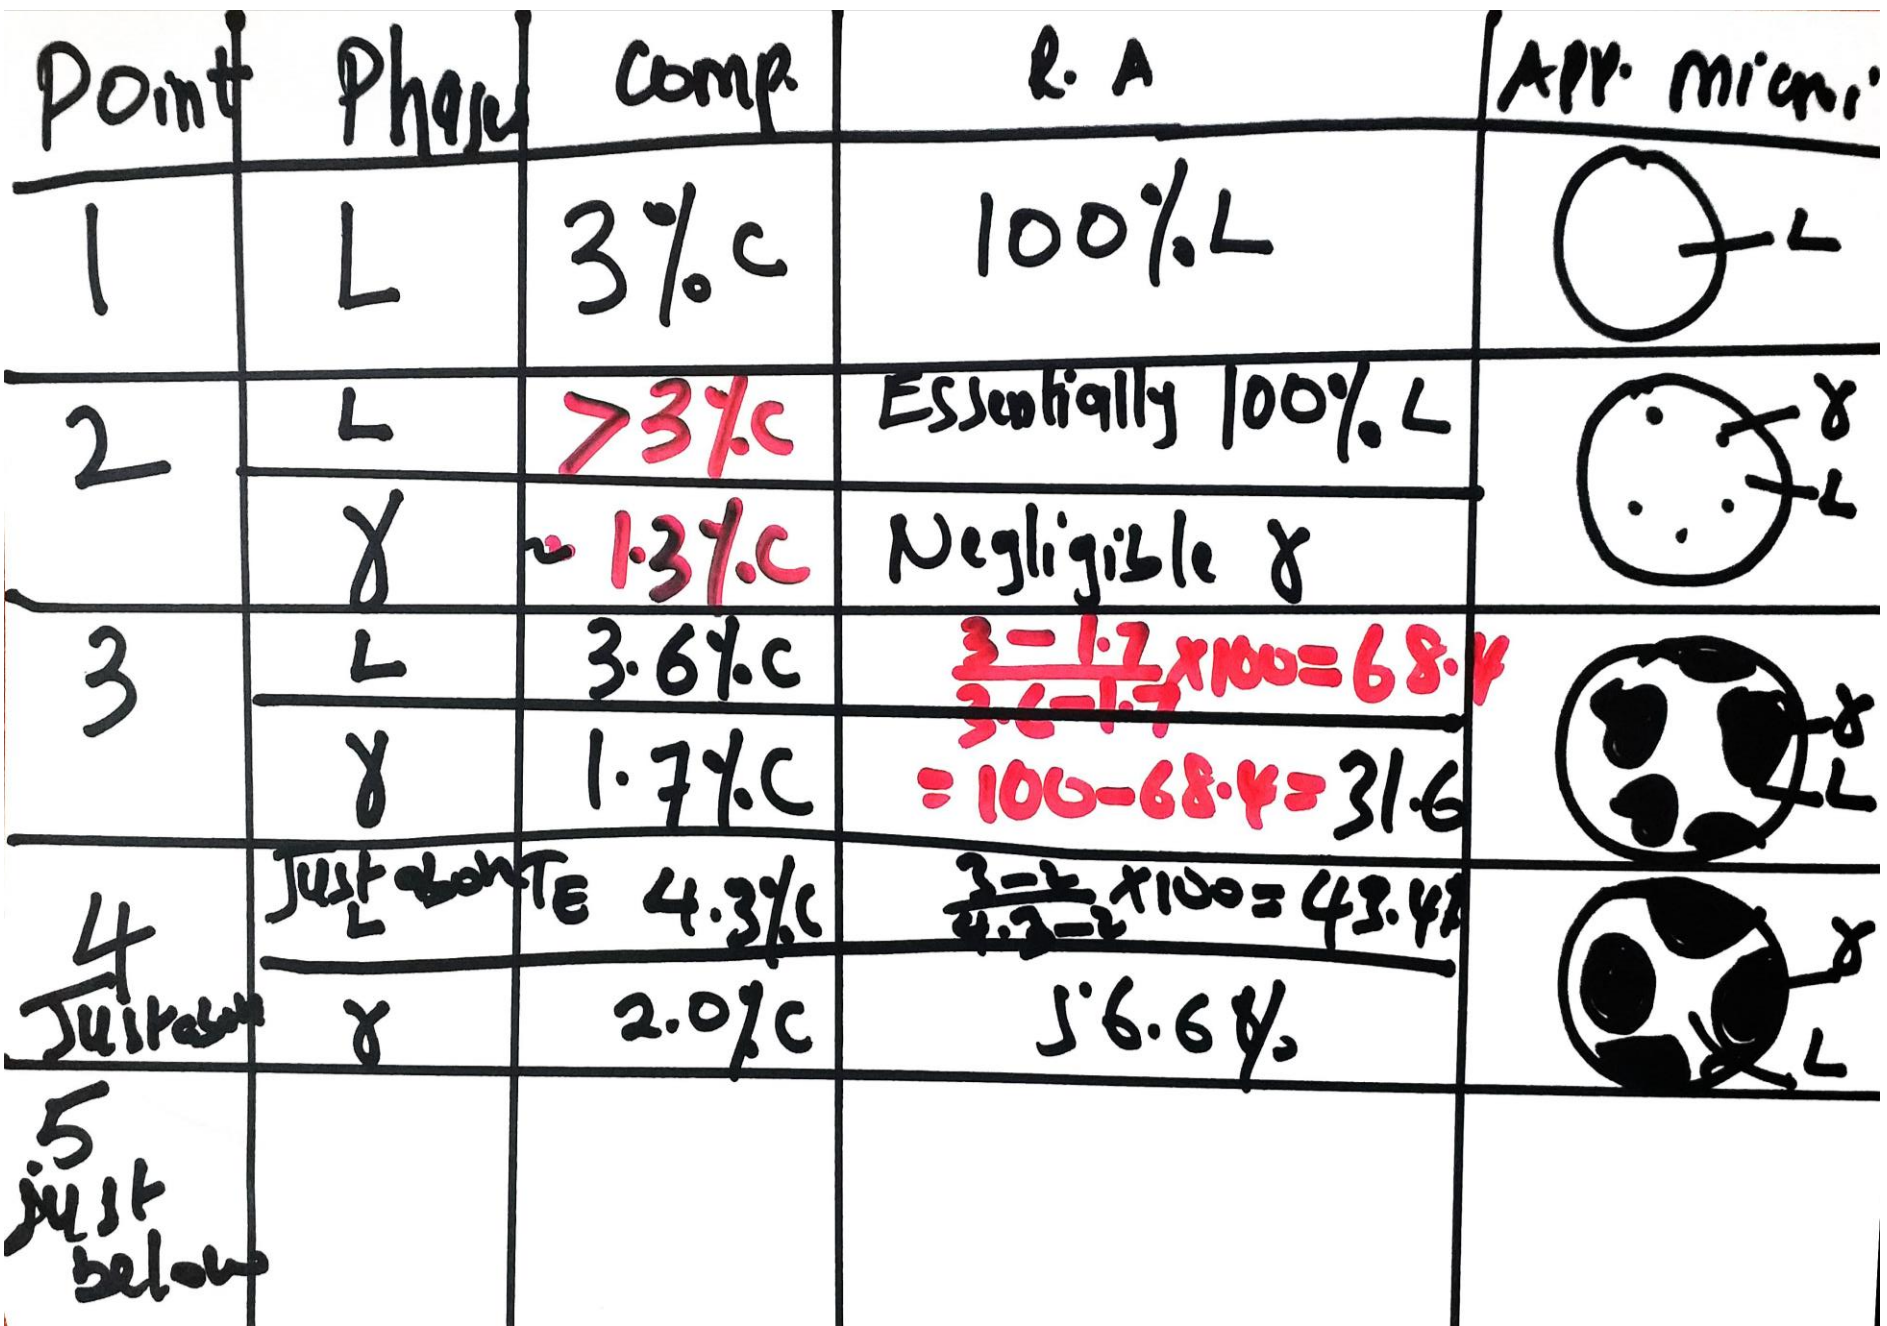 Point Phases Comp. R. A App. micro
1 L 3%C 100%L L
2 L >3%C Essentially 100% L γ
L
γ ~ 1.3%C Negligible γ
3 L 3.6%C 3-1.7/3.6-1.7 ×100=68.4
γ 1.7%C =100-68.4=31.6 γ
L
4 Just above TE
L 4.3%C 3-2/4.3-2 ×100=43.4%
Just above γ 2.0%C 56.6% γ
L
5
just
below